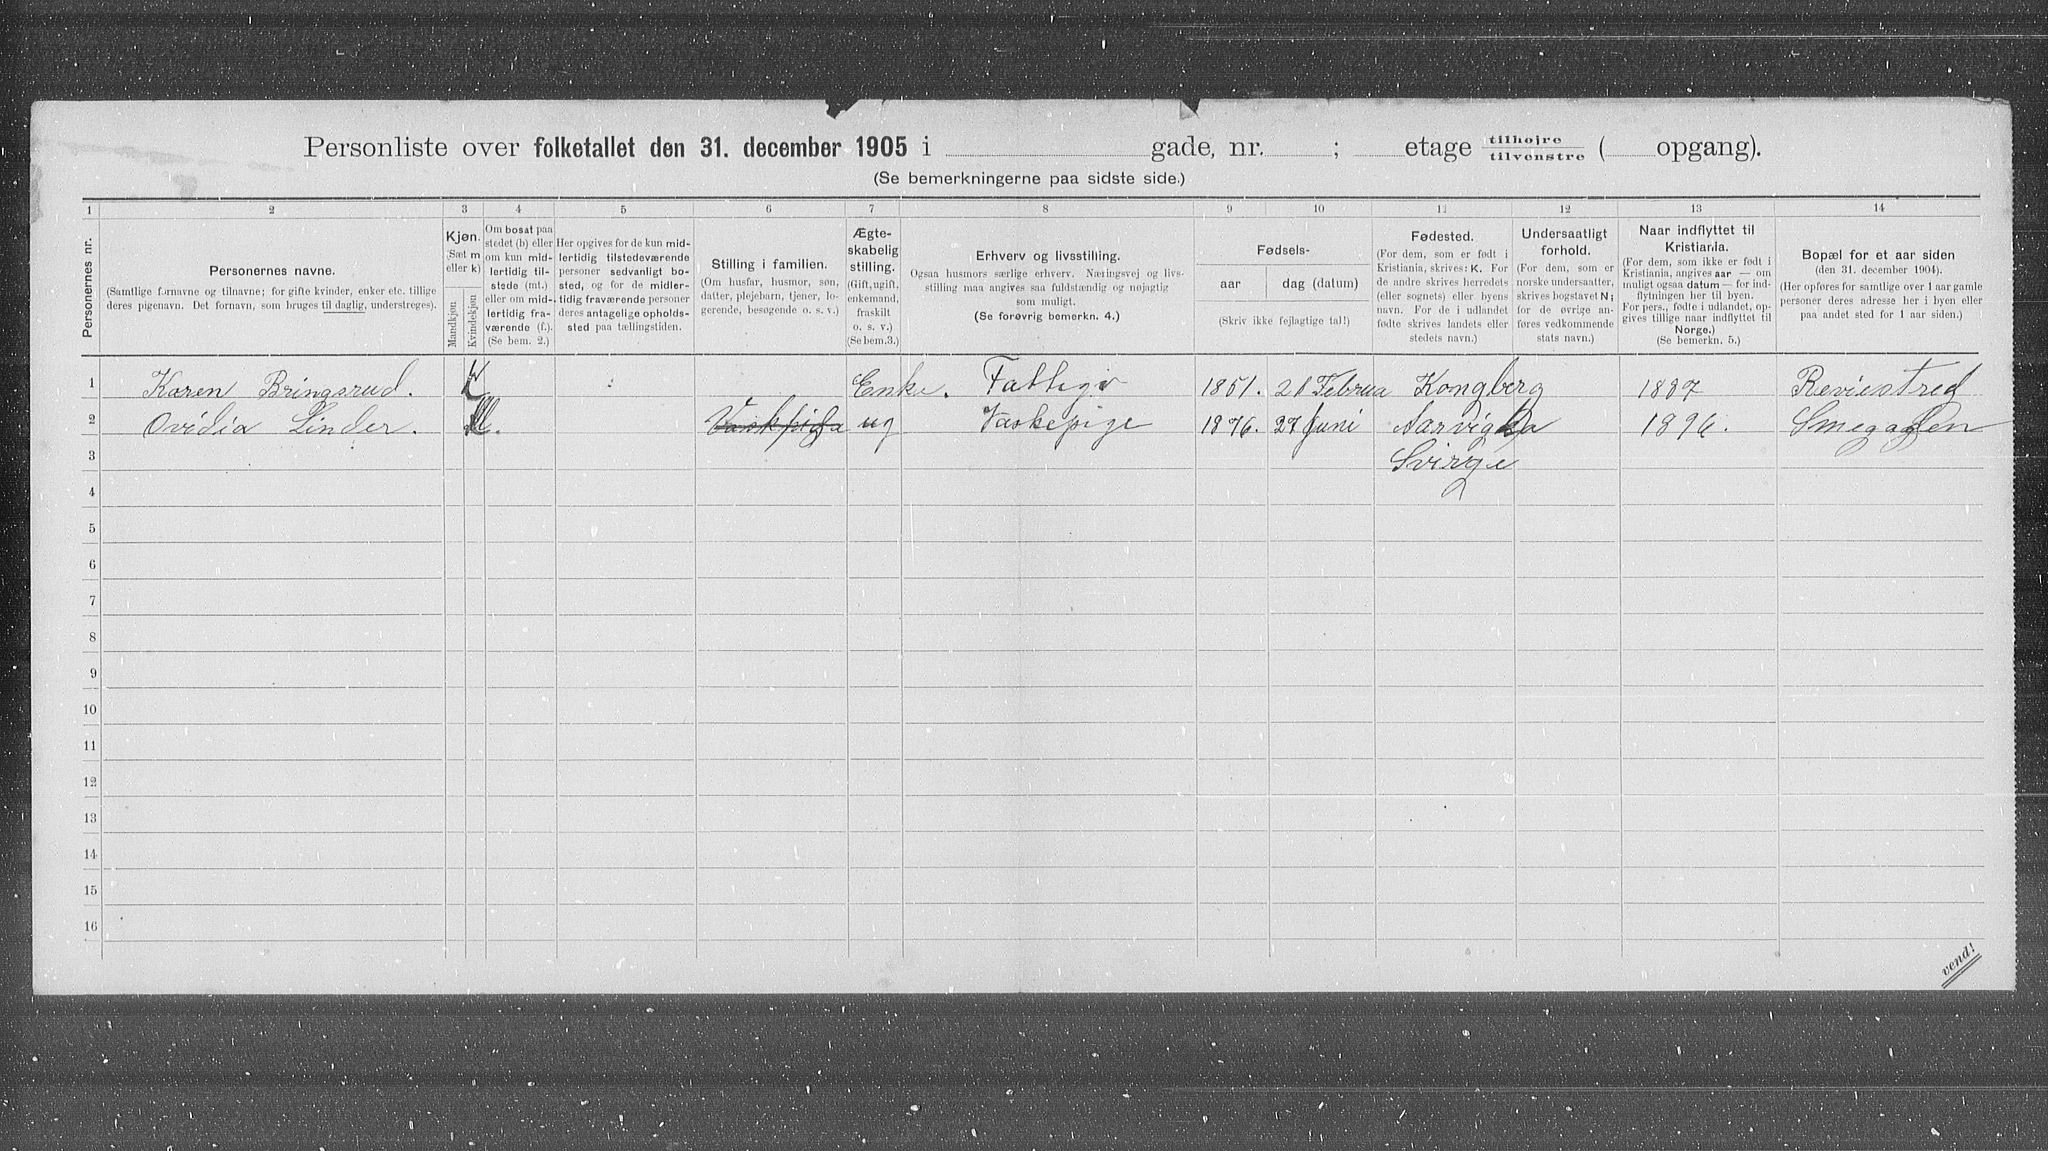 Personliste over folketallet den 31. december 1905 i gade, nr. ; etage tilhøjre tilvenstre ( opgang).
(Se bemerkningerne paa sidste side.)
1 2 3 4 5 6 7 8 9 10 11 12 13 14
Personernes nr.
Personernes navne.
(Samtlige fornavne og tilnavne; for gifte kvinder, enker etc. tillige
deres pigenavn. Det fornavn, som bruges til daglig, understreges).
Kjøn.
(Sæt m
eller k)
Mandkjøn
Kvindekjøn
Om bosat paa
stedet (b) eller
om kun mid-
lertidig til-
stede (mt.)
eller om mid-
lertidig fra-
værende (f.).
(Se bem. 2.)
Her opgives for de kun mid-
lertidig tilstedeværende
personer sedvanlig bo-
sted, og for de midler-
tidig fraværende personer
deres antagelige opholds-
sted paa tællingstiden.
Stilling i familien.
(Om husfar, husmor, søn,
datter, plejebarn, tjener, lo-
gerende, besøgende o. s. v.)
Ægte-
skabelig
stilling.
(Gift, ugift,
enkemand,
fraskilt
o. s. v.)
(Se bem.3.)
Erhverv og livsstilling.
Ogsaa husmors særlige erhverv. Næringsvej og livs-
stilling maa angives saa fuldstændig og nøjagtig
som muligt.
(Se forøvrig bemerkn. 4.)
Fødsels-
aar dag (datum)
(Skriv ikke fejlagtige tal!)
Fødested.
(For dem, som er født i
Kristiania, skrives: K. For
de andre skrives herredets
(eller sognets) eller byens
navn. For de i udlandet
fødte skrives landets eller
stedets navn.)
Undersaatligt
forhold.
(For dem, som er
norske undersaatter,
skrives bogstavet N;
for de øvrige an-
føres vedkommende
stats navn.)
Naar indflyttet til
Kristiania.
(For dem, som ikke er født i
Kristiania, angives aar — om
muligt ogsaa datum — for ind-
flytningen her til byen.
For pers., fødte i udlandet, op-
gives tillige naar indflyttet til
Norge.)
(Se bemerkn. 5.)
Bopæl for et aar siden
(den 31. december 1904).
(Her opføres for samtlige over 1 aar gamle
personer deres adresse her i byen eller
paa andet sted for 1 aar siden.)
1 Karen Bringsrud. Enke. Fattigv 1851. 21 Februa Kongberg 1887 Reviestred
2 Ovidia Linder. Vaskpiga ug Vaskepige 1876. 27 Juni Aarvigka 1896. Smegagden
3 Svirge
4
5
6
7
8
9
10
11
12
13
14
15
16
vend!